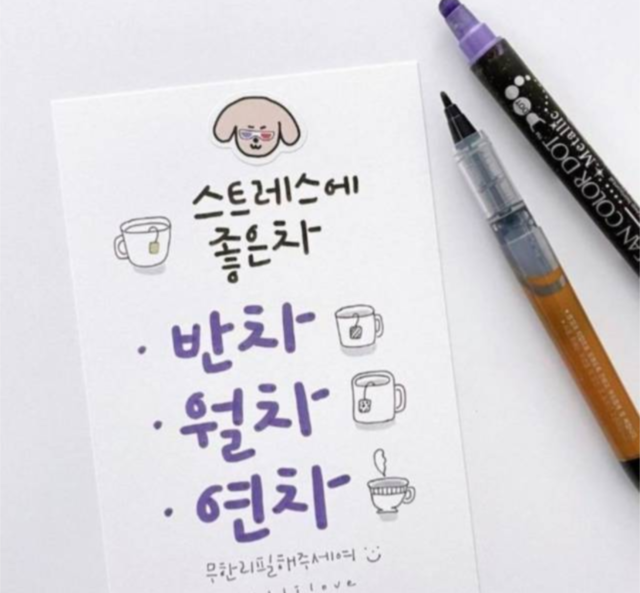 스트레스에
좋은차
· 반차
· 월차
· 연차
무한리필해주세여
COLOR DOT
Metallic